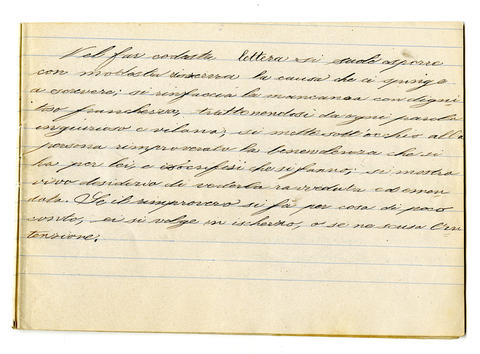 Nel far codesta lettera si suole esporre
con modesta riserva la causa che ci spinge
a scrivere; si rinfaccia la mancanza con digni
tosa franchezza, trattenendosi da ogni parola
ingiuriosa e villana; si mette sott'occhio alla
persona rimproverata la benevolenza che si
ha per lei, e i sacrifisi che si fanno; si mostra
vivo desiderio di vederla ravveduta ed emen
data. Se il rimprovero si fà per cosa di poco
conto, ei si volge in ischerzo, o se ne scusa l'in
tenzione.